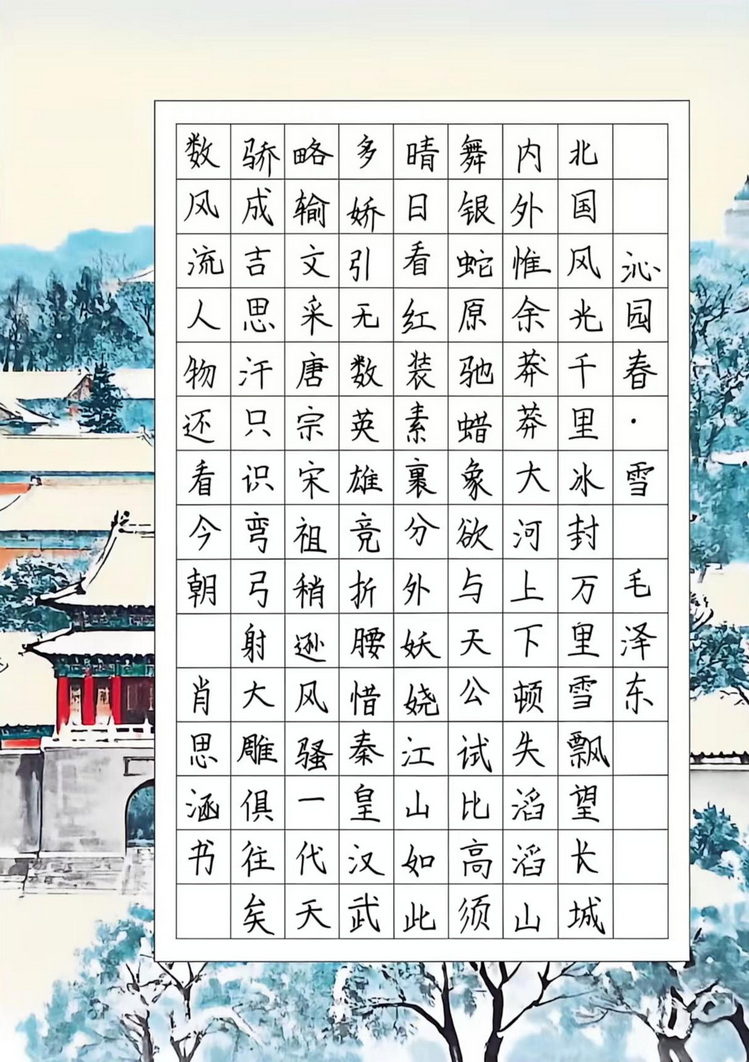 沁园春·雪 毛泽东
北国风光千里冰封万里雪飘望长城
内外惟余莽莽大河上下顿失滔滔山
舞银蛇原驰蜡象欲与天公试比高须
晴日看红装素裹分外妖娆江山如此
多娇引无数英雄竞折腰惜秦皇汉武
略输文采唐宗宋祖稍逊风骚一代天
骄成吉思汗只识弯弓射大雕俱往矣
数风流人物还看今朝 肖思涵书